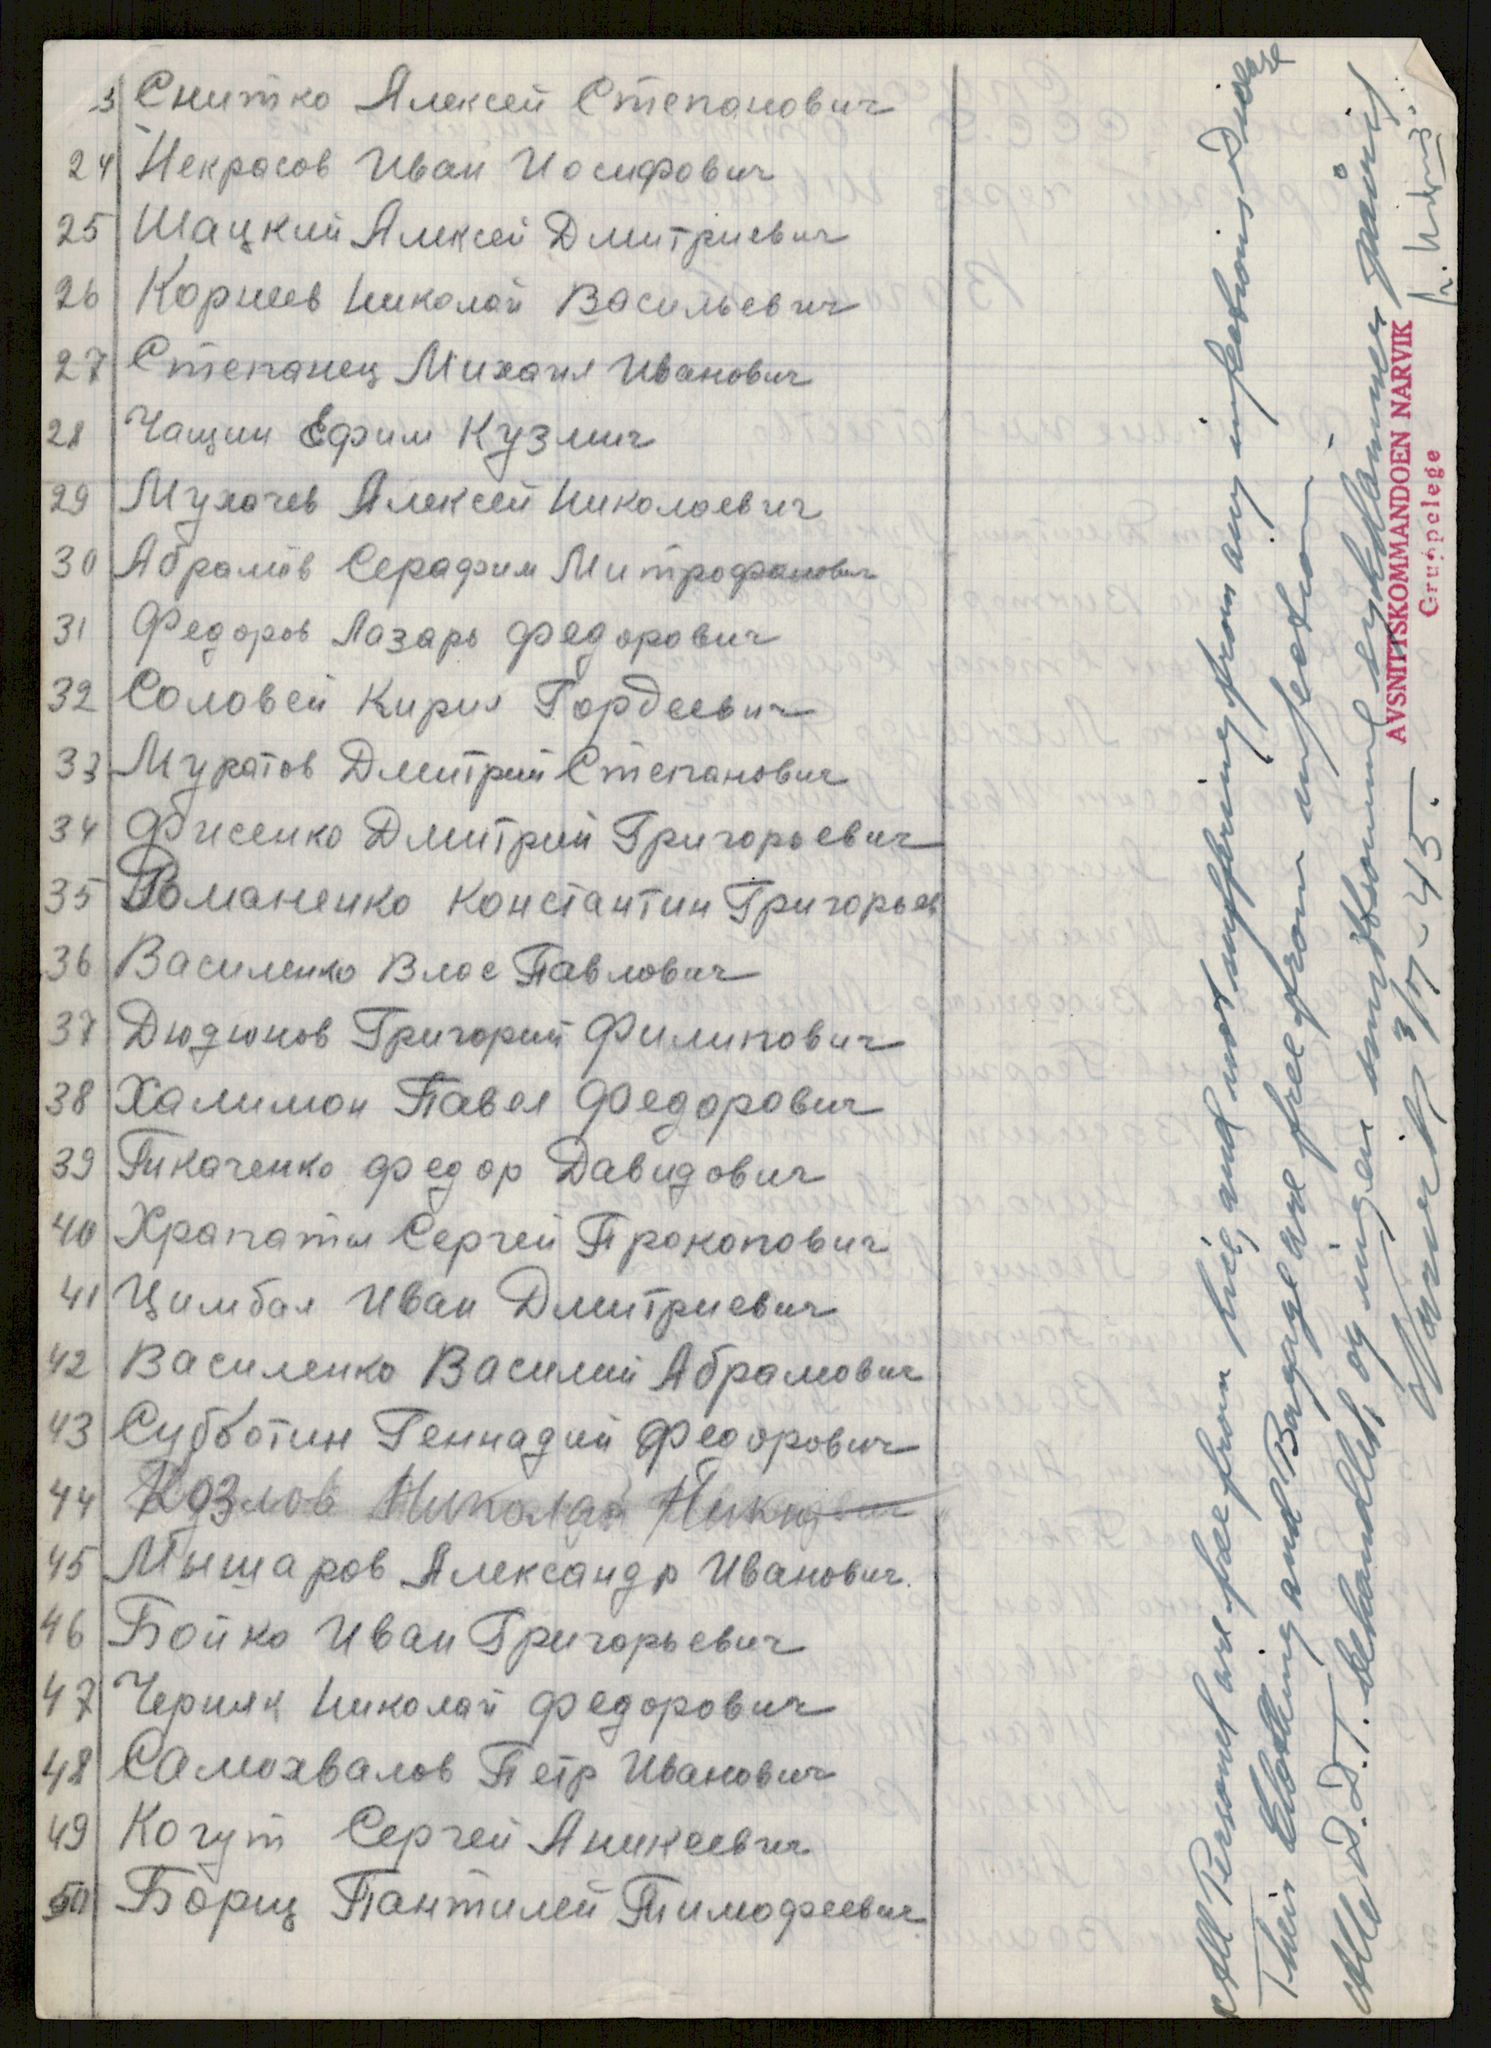 3 Снитко Алексей Степанович
24 Некрасов Иван Иосифович
25 Шацкий Алексей Дмитриевич
26 Корнеев Николай Васильевич
27 Степанец Михаил Иванович
28 Чащин Ефим Кузмич
29 Мухачев Алексей Николаевич
30 Абрамов Серафим Митрофанович
31 Федоров Лазарь Федорович
32 Соловей Кирил Гордеевич
33 Муратов Дмитрий Степанович
34 Фисенко Дмитрий Григорьевич
35 Романенко Константин Григорьев
36 Василенко Влас Павлович
37 Дюдюнов Григорий Филипович
38 Халимон Павел Федорович
39 Ткаченко Федор Давидович
40 Храпатый Сергей Прокопович
41 Цимбал Иван Дмитриевич
42 Василенко Василий Абрамович
43 Субботин Геннадий Федорович
44 Козлов Николай
45 Мышаров Александр Иванович.
46 Бойко Иван Григорьевич
47 Черняк Николай Федорович
48 Самохвалов Петр Иванович
49 Когут Сергей Аникеевич
50 Борщ Пантилей Тимофеевич
All Personel are free from lice, and not suffering from any infectious
Their Clothing and Bagage are free from infection
Alle D.D.T. behandlet, og ingen smittsomme sykdommer påvist
Narvik 3/7-45.
AVSNITTSKOMMANDOEN NARVIK
Gruppelege